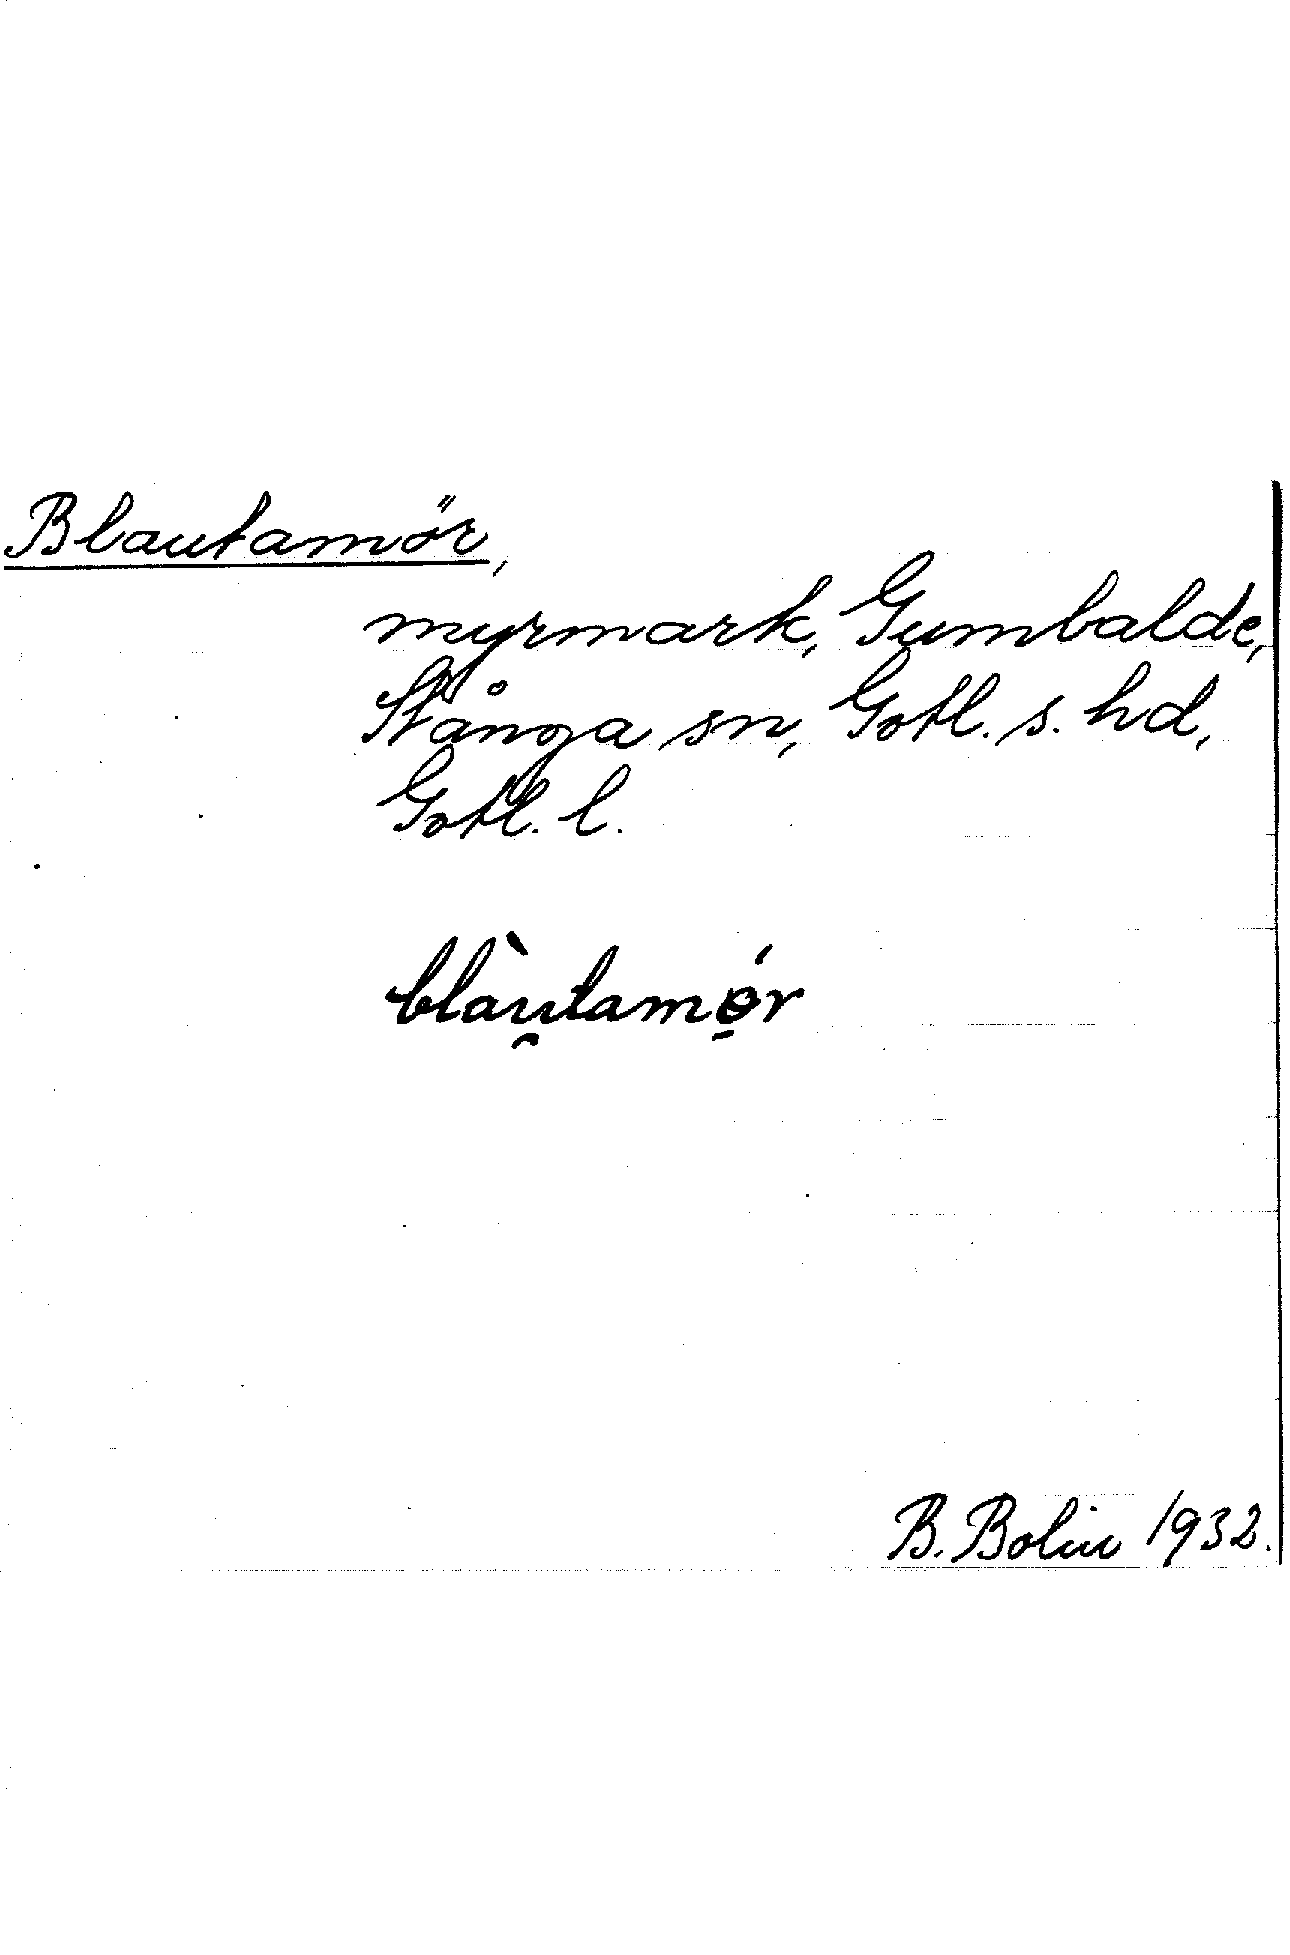 Blautamör,
myrmark, Gumbalde,
Stånga sn, Gotl. s. hd,
Gotl. l.
blàu̯tamǿ̠r
B. Bolin 1932.